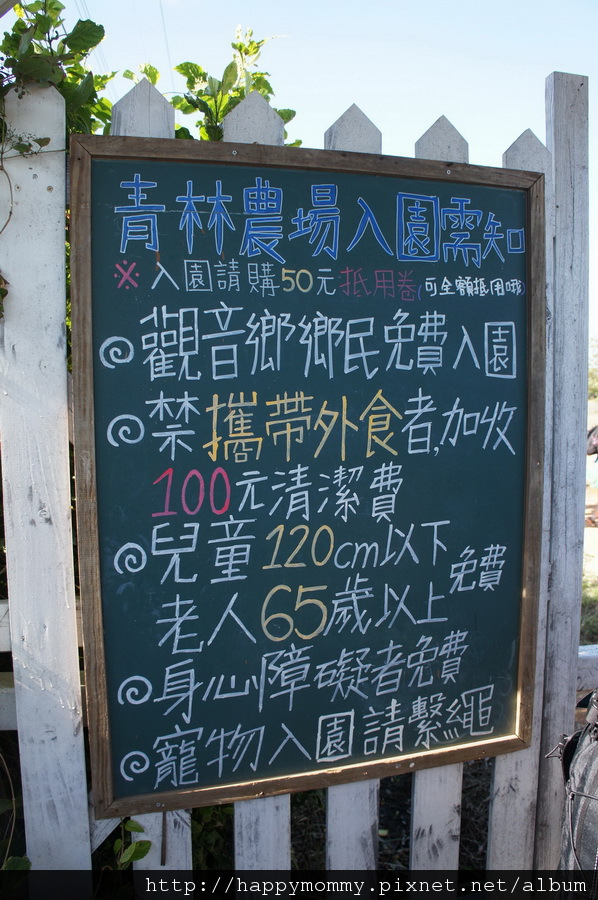 青林農場入園需知
※入園請購50元抵用卷(可全額抵用哦)
◎觀音鄉鄉民免費入園
◎禁攜帶外食者,加收
100元清潔費
◎兒童120cm以下
老人65歲以上 免費
◎身心障礙者免費
◎寵物入園請繫繩
http://happymommy.pixnet.net/album